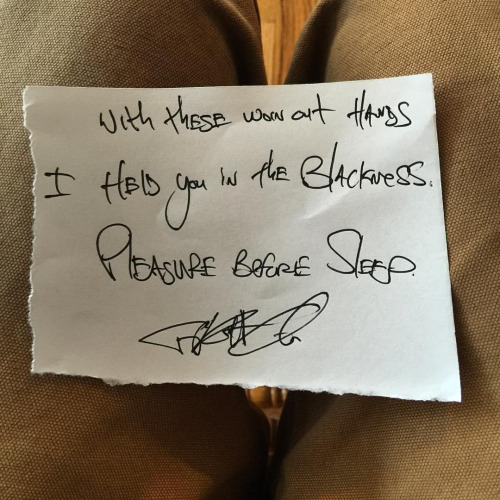 With these worn out Hands
I Held you in the Blackness.
Pleasure Before Sleep.